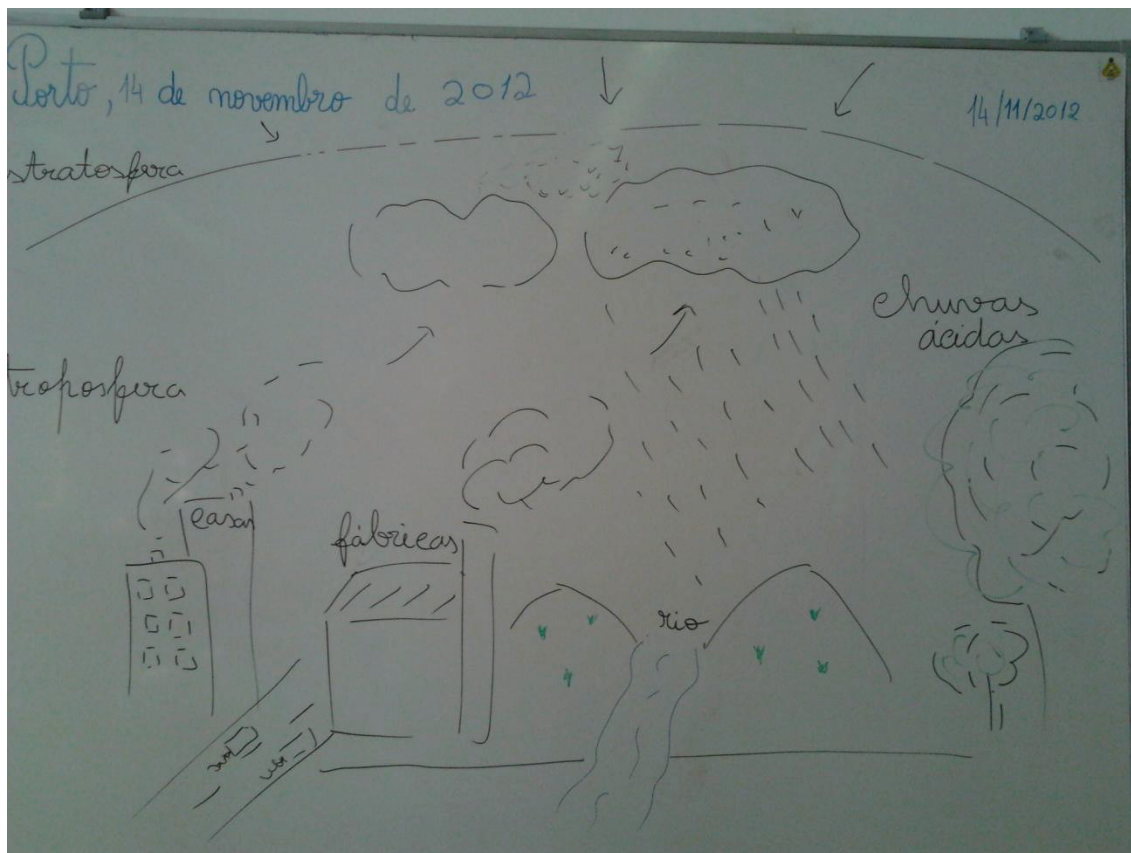 Porto, 14 de novembro de 2012
14/11/2012
stratosfera
chuvas
ácidas
troposfera
casas
fábricas
rio